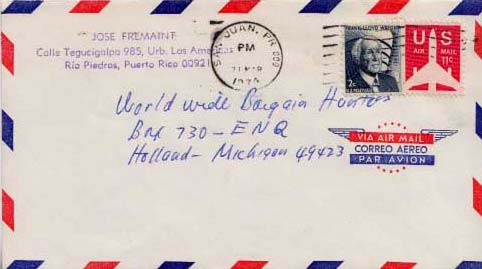 JOSE FREMAINT
Calle Tegucigalpa 985, Urb. Las Americas
Rio Piedras, Puerto Rico 00921
SAN JUAN, PR 009
PM
FRANK LLOYD WRIGHT
2c
U.S. POSTAGE
U S
AIR MAIL
11c
World wide Bargain Hunters
Box 730 - ENQ
Holland - Michigan 49423
VIA AIR MAIL
CORREO AEREO
PAR AVION